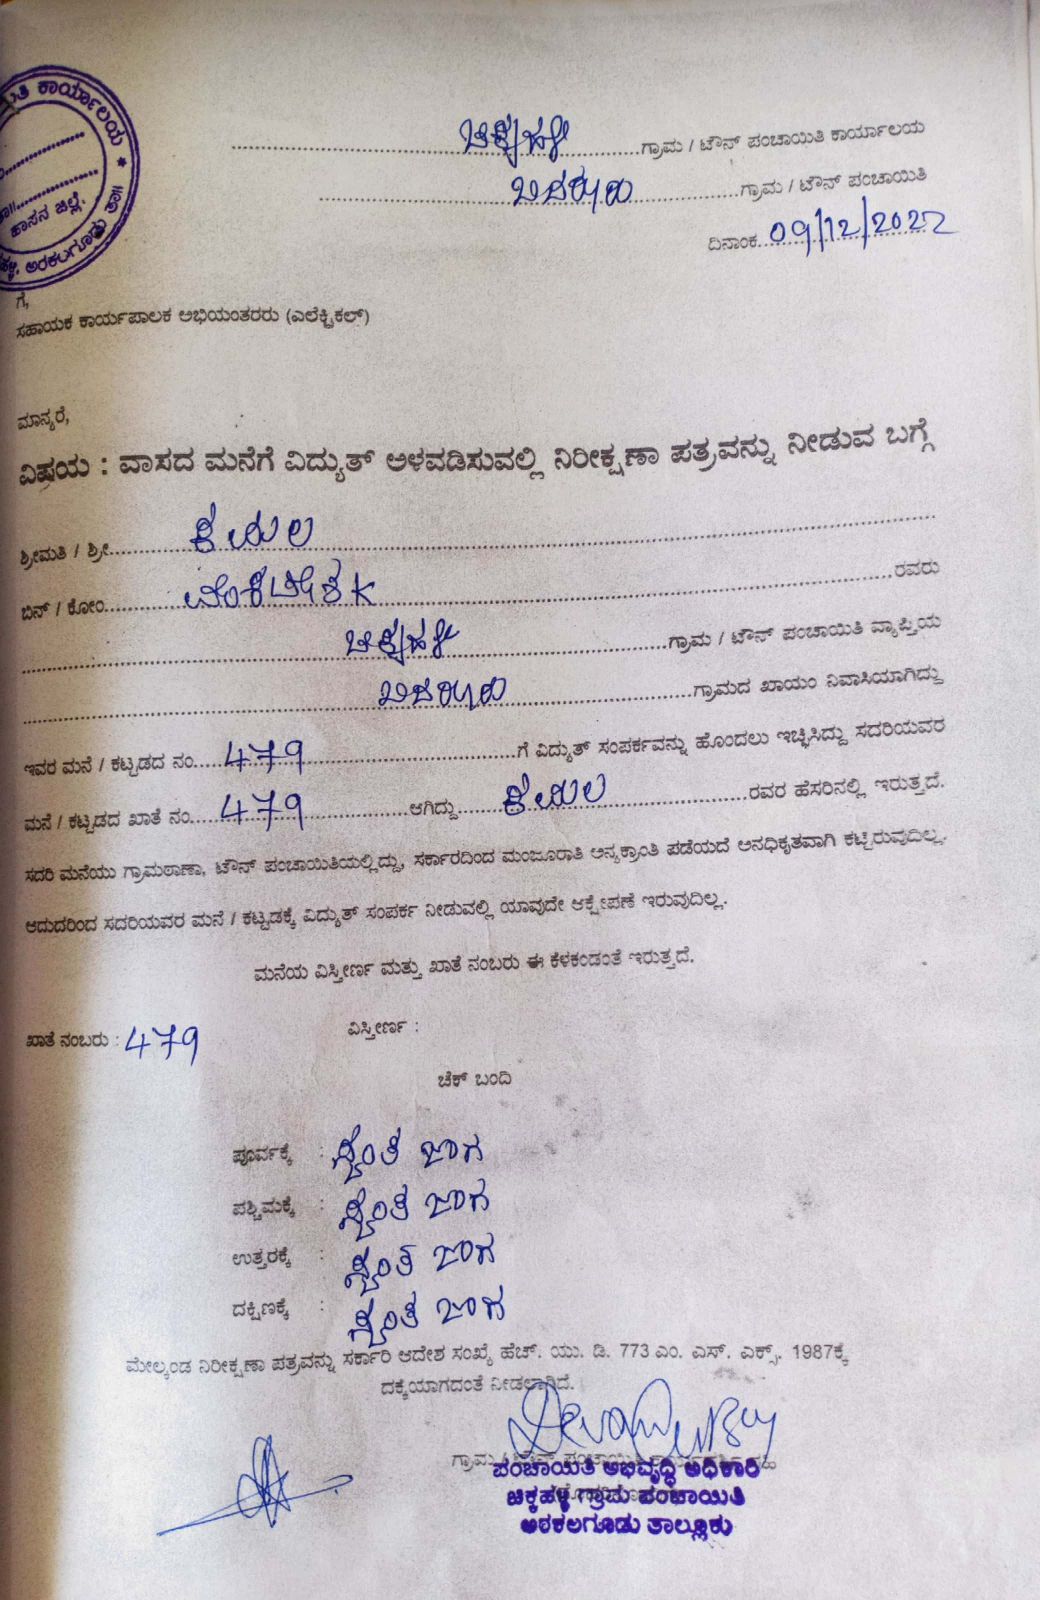 ಕಾರ್ಯಾಲಯ *
ಹಾಸನ ಜಿಲ್ಲೆ.
ಅರಕಲಗೂಡು ತಾ||
ಚಿಕ್ಕಹಳ್ಳಿ ಗ್ರಾಮ / ಟೌನ್ ಪಂಚಾಯಿತಿ ಕಾರ್ಯಾಲಯ
ಬಿದರೂರು ಗ್ರಾಮ / ಟೌನ್ ಪಂಚಾಯಿತಿ
ದಿನಾಂಕ 09/12/2022
ಗೆ,
ಸಹಾಯಕ ಕಾರ್ಯಪಾಲಕ ಅಭಿಯಂತರರು (ಎಲೆಕ್ಟ್ರಿಕಲ್)
ಮಾನ್ಯರೆ,
ವಿಷಯ : ವಾಸದ ಮನೆಗೆ ವಿದ್ಯುತ್ ಅಳವಡಿಸುವಲ್ಲಿ ನಿರೀಕ್ಷಣಾ ಪತ್ರವನ್ನು ನೀಡುವ ಬಗ್ಗೆ
ಶ್ರೀಮತಿ / ಶ್ರೀ ಕಮಲ
ಬಿನ್ / ಕೋಂ ವೆಂಕಟೇಶ K ರವರು
ಚಿಕ್ಕಹಳ್ಳಿ ಗ್ರಾಮ / ಟೌನ್ ಪಂಚಾಯಿತಿ ವ್ಯಾಪ್ತಿಯ
ಬಿದರೂರು ಗ್ರಾಮದ ಖಾಯಂ ನಿವಾಸಿಯಾಗಿದ್ದು
ಇವರ ಮನೆ / ಕಟ್ಟಡದ ನಂ. 479 ಗೆ ವಿದ್ಯುತ್ ಸಂಪರ್ಕವನ್ನು ಹೊಂದಲು ಇಚ್ಛಿಸಿದ್ದು ಸದರಿಯವರ
ಮನೆ / ಕಟ್ಟಡದ ಖಾತೆ ನಂ. 479 ಆಗಿದ್ದು ಕಮಲ ರವರ ಹೆಸರಿನಲ್ಲಿ ಇರುತ್ತದೆ.
ಸದರಿ ಮನೆಯು ಗ್ರಾಮಠಾಣಾ, ಟೌನ್ ಪಂಚಾಯಿತಿಯಲ್ಲಿದ್ದು, ಸರ್ಕಾರದಿಂದ ಮಂಜೂರಾತಿ ಅನ್ಯಕ್ರಾಂತಿ ಪಡೆಯದೆ ಅನಧಿಕೃತವಾಗಿ ಕಟ್ಟಿರುವುದಿಲ್ಲ.
ಆದುದರಿಂದ ಸದರಿಯವರ ಮನೆ / ಕಟ್ಟಡಕ್ಕೆ ವಿದ್ಯುತ್ ಸಂಪರ್ಕ ನೀಡುವಲ್ಲಿ ಯಾವುದೇ ಆಕ್ಷೇಪಣೆ ಇರುವುದಿಲ್ಲ.
ಮನೆಯ ವಿಸ್ತೀರ್ಣ ಮತ್ತು ಖಾತೆ ನಂಬರು ಈ ಕೆಳಕಂಡಂತೆ ಇರುತ್ತದೆ.
ಖಾತೆ ನಂಬರು : 479 ವಿಸ್ತೀರ್ಣ :
ಚೆಕ್ ಬಂದಿ
ಪೂರ್ವಕ್ಕೆ : ಸ್ವಂತ ಜಾಗ
ಪಶ್ಚಿಮಕ್ಕೆ : ಸ್ವಂತ ಜಾಗ
ಉತ್ತರಕ್ಕೆ : ಸ್ವಂತ ಜಾಗ
ದಕ್ಷಿಣಕ್ಕೆ : ಸ್ವಂತ ಜಾಗ
ಮೇಲ್ಕಂಡ ನಿರೀಕ್ಷಣಾ ಪತ್ರವನ್ನು ಸರ್ಕಾರಿ ಆದೇಶ ಸಂಖ್ಯೆ ಹೆಚ್. ಯು. ಡಿ. 773 ಎಂ. ಎಸ್. ಎಕ್ಸ್. 1987ಕ್ಕೆ
ದಕ್ಕೆಯಾಗದಂತೆ ನೀಡಲಾಗಿದೆ.
ಪಂಚಾಯಿತಿ ಅಭಿವೃದ್ಧಿ ಅಧಿಕಾರಿ
ಚಿಕ್ಕಹಳ್ಳಿ ಗ್ರಾಮ ಪಂಚಾಯಿತಿ
ಅರಕಲಗೂಡು ತಾಲ್ಲೂಕು